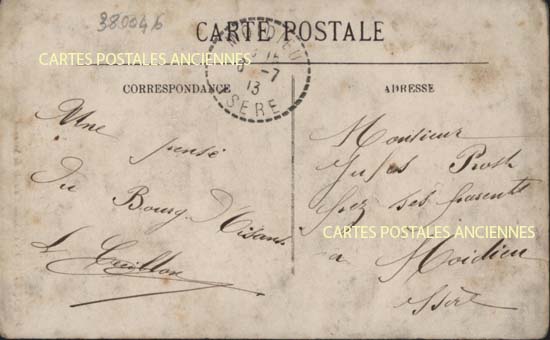 380046
CARTE POSTALE
CARTES POSTALES ANCIENNES
MOIDIEU
6 -7
13
ISERE
CORRESPONDANCE
ADRESSE
Une
pensé
du Bourg d'Oisans
L Guillon
Monsieur
Jules Prost
chez ses parents
CARTES POSTALES ANCIENNES
a Moidieu
Isère